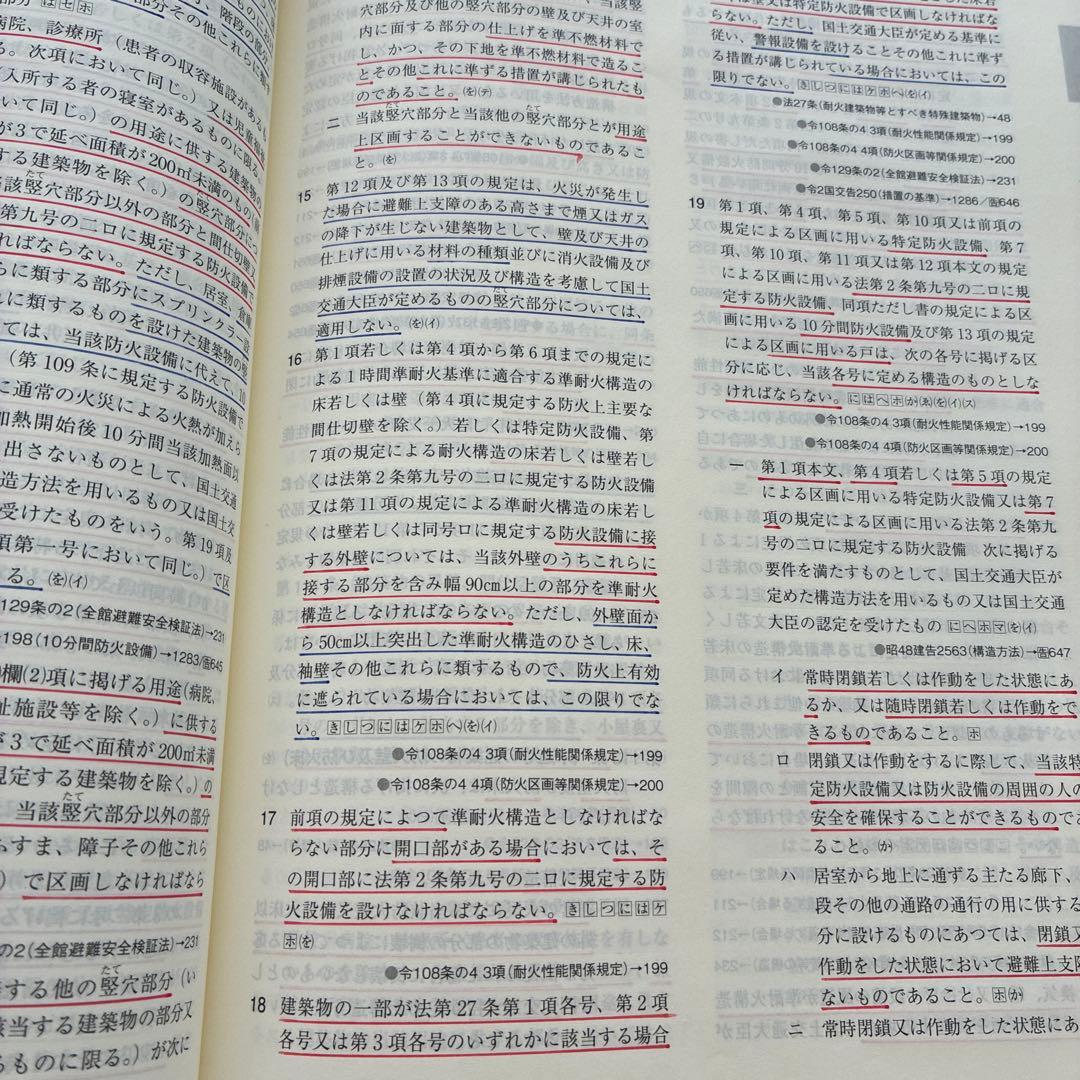 病院、診療所（患者の収容施設があるも
る。次項において同じ。）又は児童福祉
入所する者の寝室があるものに限る。
いて同じ。）の用途に供する建築物の
が3で延べ面積が200㎡未満のもの
する建築物を除く。）の竪穴部分につ
当該竪穴部分以外の部分と間仕切壁又
第九号の二ロに規定する防火設備で
ればならない。ただし、居室、倉庫
らに類する部分にスプリンクラー設
れに類するものを設けた建築物の竪
ては、当該防火設備に代えて、10
（第109条に規定する防火設備で
に通常の火災による火熱が加えら
加熱開始後10分間当該加熱面以
出さないものとして、国土交通
造方法を用いるもの又は国土交
受けたものをいう。第19項及
項第一号において同じ。）で区
る。(を)(イ)
129条の2（全館避難安全検証法）→231
198（10分間防火設備）→1283/告645
欄(2)項に掲げる用途（病院、
祉施設等を除く。）に供する
が3で延べ面積が200㎡未満
規定する建築物を除く。）の
当該竪穴部分以外の部分
おすま、障子その他これら
）で区画しなければなら
の2（全館避難安全検証法）→231
する他の竪穴部分（い
該当する建築物の部分又
るものに限る。）が次に
穴部分及び他の竪穴部分の壁及び天井の室
内に面する部分の仕上げを準不燃材料で
し、かつ、その下地を準不燃材料で造るこ
とその他これに準ずる措置が講じられたも
のであること。(を)(テ)
二 当該竪穴部分と当該他の竪穴部分とが用途
上区画することができないものであるこ
と。(を)
15 第12項及び第13項の規定は、火災が発生し
た場合に避難上支障のある高さまで煙又はガス
の降下が生じない建築物として、壁及び天井の
仕上げに用いる材料の種類並びに消火設備及び
排煙設備の設置の状況及び構造を考慮して国土
交通大臣が定めるものの竪穴部分については、
適用しない。(を)(イ)
16 第1項若しくは第4項から第6項までの規定に
よる1時間準耐火基準に適合する準耐火構造の
床若しくは壁（第4項に規定する防火上主要な
間仕切壁を除く。）若しくは特定防火設備、第
7項の規定による耐火構造の床若しくは壁若し
くは法第2条第九号の二ロに規定する防火設備
又は第11項の規定による準耐火構造の床若し
くは壁若しくは同号ロに規定する防火設備に接
する外壁については、当該外壁のうちこれらに
接する部分を含み幅90cm以上の部分を準耐火
構造としなければならない。ただし、外壁面か
ら50cm以上突出した準耐火構造のひさし、床、
袖壁その他これらに類するもので、防火上有効
に遮られている場合においては、この限りでな
い。きしつにはケホ(ヘ)(を)(イ)
●令108条の4 3項（耐火性能関係規定）→199
●令108条の4 4項（防火区画等関係規定）→200
17 前項の規定によつて準耐火構造としなければな
らない部分に開口部がある場合においては、そ
の開口部に法第2条第九号の二ロに規定する防
火設備を設けなければならない。きしつにはケ
ホ(を)
●令108条の4 3項（耐火性能関係規定）→199
18 建築物の一部が法第27条第1項各号、第2項
各号又は第3項各号のいずれかに該当する場合
壁又は特定防火設備で区画しなければな
らない。ただし、国土交通大臣が定める基準に
従い、警報設備を設けることその他これに準ず
る措置が講じられている場合においては、この
限りでない。きしつにはケホへ(を)(イ)
●法27条（耐火建築物等とすべき特殊建築物）→48
●令108条の4 3項（耐火性能関係規定）→199
●令108条の4 4項（防火区画等関係規定）→200
●令129条の2（全館避難安全検証法）→231
●令2国交告250（措置の基準）→1286/告646
19 第1項、第4項、第5項、第10項又は前項の
規定による区画に用いる特定防火設備、第7
項、第10項、第11項又は第12項本文の規定
による区画に用いる法第2条第九号の二ロに規
定する防火設備、同項ただし書の規定による区
画に用いる10分間防火設備及び第13項の規定
による区画に用いる戸は、次の各号に掲げる区
分に応じ、当該各号に定める構造のものとしな
ければならない。にはヘホ(か)(ね)(を)(イ)(ス)
●令108条の4 3項（耐火性能関係規定）→199
●令108条の4 4項（防火区画等関係規定）→200
一 第1項本文、第4項若しくは第5項の規定
による区画に用いる特定防火設備又は第7
項の規定による区画に用いる法第2条第九
号の二ロに規定する防火設備 次に掲げる
要件を満たすものとして、国土交通大臣が
定めた構造方法を用いるもの又は国土交通
大臣の認定を受けたもの にヘホマ(を)(イ)
●昭48建告2563（構造方法）→告647
イ 常時閉鎖若しくは作動をした状態にあ
るか、又は随時閉鎖若しくは作動をで
きるものであること。ホ
ロ 閉鎖又は作動をするに際して、当該特
定防火設備又は防火設備の周囲の人の
安全を確保することができるものであ
ること。(か)
ハ 居室から地上に通ずる主たる廊下、
段その他の通路の通行の用に供する
分に設けるものにあつては、閉鎖又
作動をした状態において避難上支障
ないものであること。ホ(か)
ニ 常時閉鎖又は作動をした状態にあ